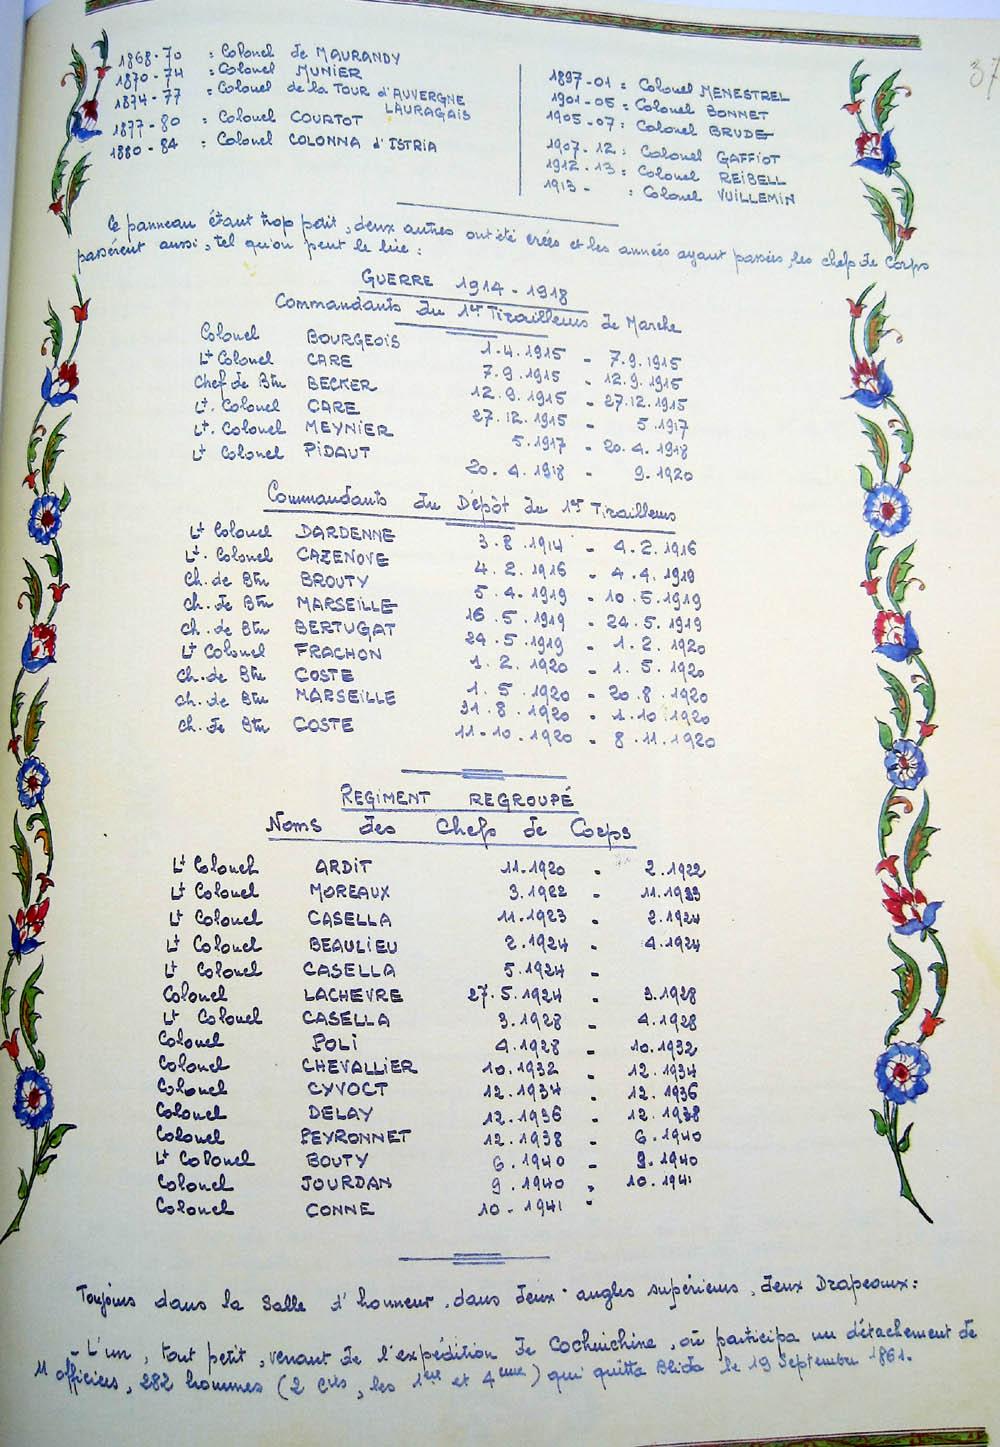 37
1868-70 : Colonel de MAURANDY
1870-74 : Colonel MUNIER
1874-77 : Colonel de la TOUR d'AUVERGNE
LAURAGAIS
1877-80 : Colonel COURTOT
1880-84 : Colonel COLONNA d'ISTRIA
1897-01 : Colonel MENESTREL
1901-05 : Colonel BONNET
1905-07 : Colonel BRUDE
1907.12 : Colonel GAFFIOT
1912.13 : Colonel REIBELL
1913- : Colonel VUILLEMIN
Ce panneau étant trop petit, deux autres ont été créés et les années ayant passées, les chefs de Corps
passèrent aussi, tel qu'on peut le lire :
GUERRE 1914-1918
Commandants du 1er Tirailleurs de Marche
Colonel BOURGEOIS 1.4.1915 - 7.9.1915
Lt Colonel CARE 7.9.1915 - 12.9.1915
Chef de Btn BECKER 12.9.1915 - 27.12.1915
Lt. Colonel CARE 27.12.1915 - 5.1917
Lt. Colonel MEYNIER 5.1917 - 20.4.1918
Lt Colonel PIDAUT 20.4.1918 - 9.1920
Commandants du Dépôt du 1er Tirailleurs
Lt Colonel DARDENNE 3.8.1914 - 4.2.1916
Lt. Colonel CAZENOVE 4.2.1916 - 4.4.1919
Ch. de Btn BROUTY 5.4.1919 - 10.5.1919
Ch. de Btn MARSEILLE 16.5.1919 - 24.5.1919
Ch. de Btn BERTUGAT 24.5.1919 - 1.2.1920
Lt Colonel FRACHON 1.2.1920 - 1.5.1920
Ch. de Btn COSTE 1.5.1920 - 20.8.1920
Ch. de Btn MARSEILLE 31.8.1920 - 1.10.1920
Ch. de Btn COSTE 11-10.1920 - 8.11.1920
REGIMENT REGROUPÉ
Noms des Chefs de Corps
Lt Colonel ARDIT 11.1920 - 2.1922
Lt Colonel MOREAUX 3.1922 - 11.1923
Lt Colonel CASELLA 11.1923 - 2.1924
Lt Colonel BEAULIEU 2.1924 - 4.1924
Lt Colonel CASELLA 5.1924 -
Colonel LACHEVRE 27.5.1924 - 3.1928
Lt Colonel CASELLA 3.1928 - 4.1928
Colonel POLI 4.1928 - 10.1932
Colonel CHEVALLIER 10.1932 - 12.1934
Colonel CYVOCT 12.1934 - 12.1936
Colonel DELAY 12.1936 - 12.1938
Colonel PEYRONNET 12.1938 - 6.1940
Lt Colonel BOUTY 6.1940 - 9.1940
Colonel JOURDAN 9.1940 - 10.1941
Colonel CONNE 10-1941 -
Toujours dans la Salle d'honneur, dans deux angles supérieurs, deux Drapeaux :
- L'un, tout petit, venant de l'expédition de Cochinchine, où participa un détachement de
11 officiers, 282 hommes (2 Cies, les 1ère et 4ème) qui quitta Blida le 19 Septembre 1861.